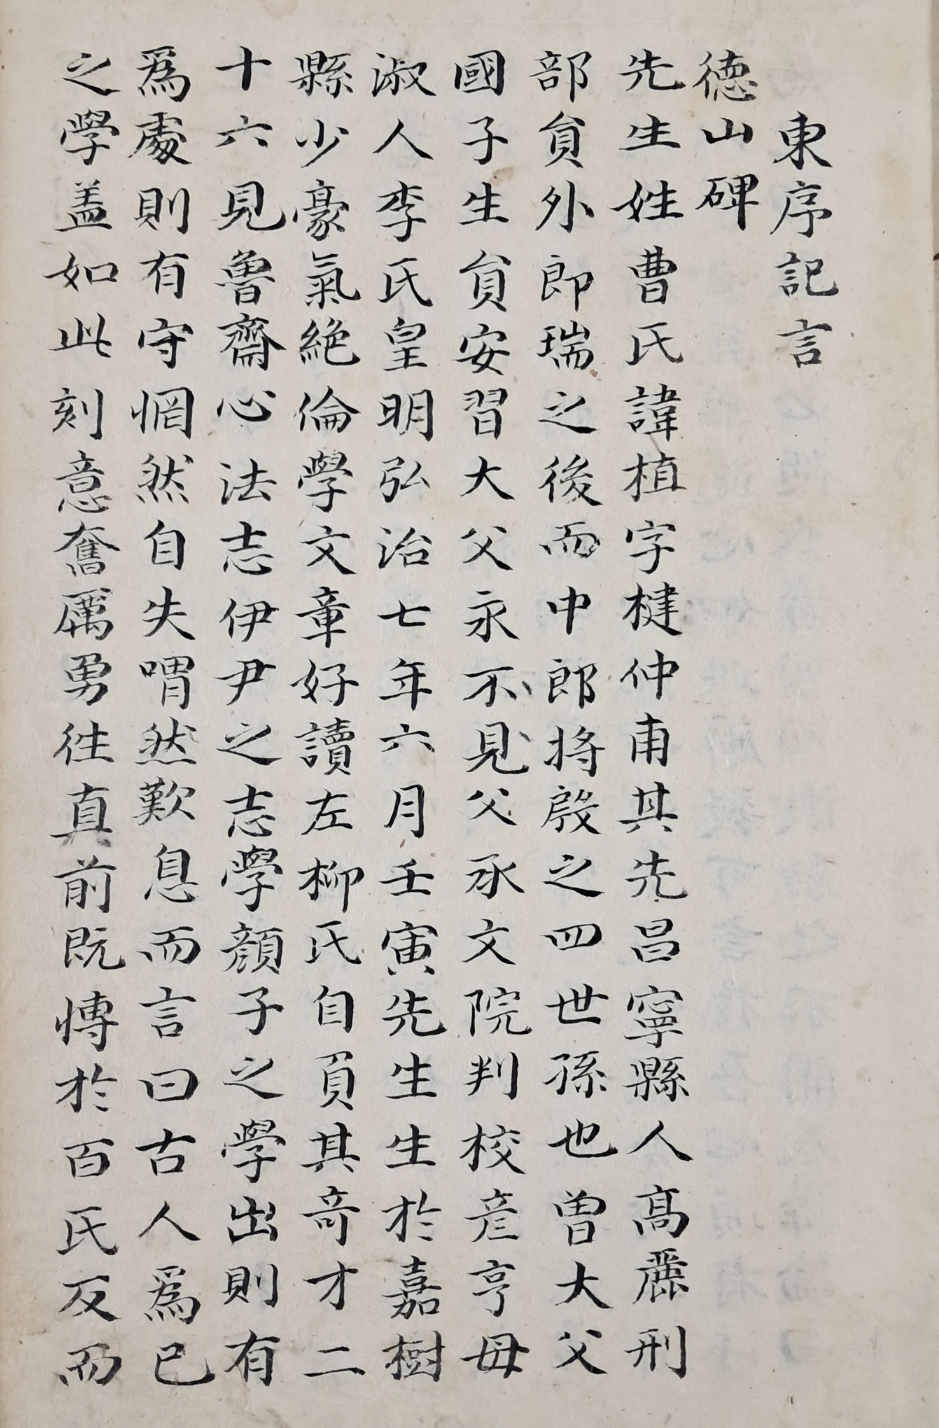 東序記言
德山碑
先生姓曹氏諱植字楗仲甫其先昌寧縣人髙麗刑
部貟外郎瑞之後而中郎將殷之四世孫也曾大父
國子生貟安習大父永不見父承文院判校彦亨母
淑人李氏皇明弘治七年六月壬寅先生生於嘉樹
縣少豪氣絶倫學文章好讀左柳氏自負其竒才二
十六見魯齋心法志伊尹之志學顔子之學出則有
爲處則有守惘然自失喟然歎息而言曰古人爲已
之學盖如此刻意奮厲勇徃真前既愽於百氏反而